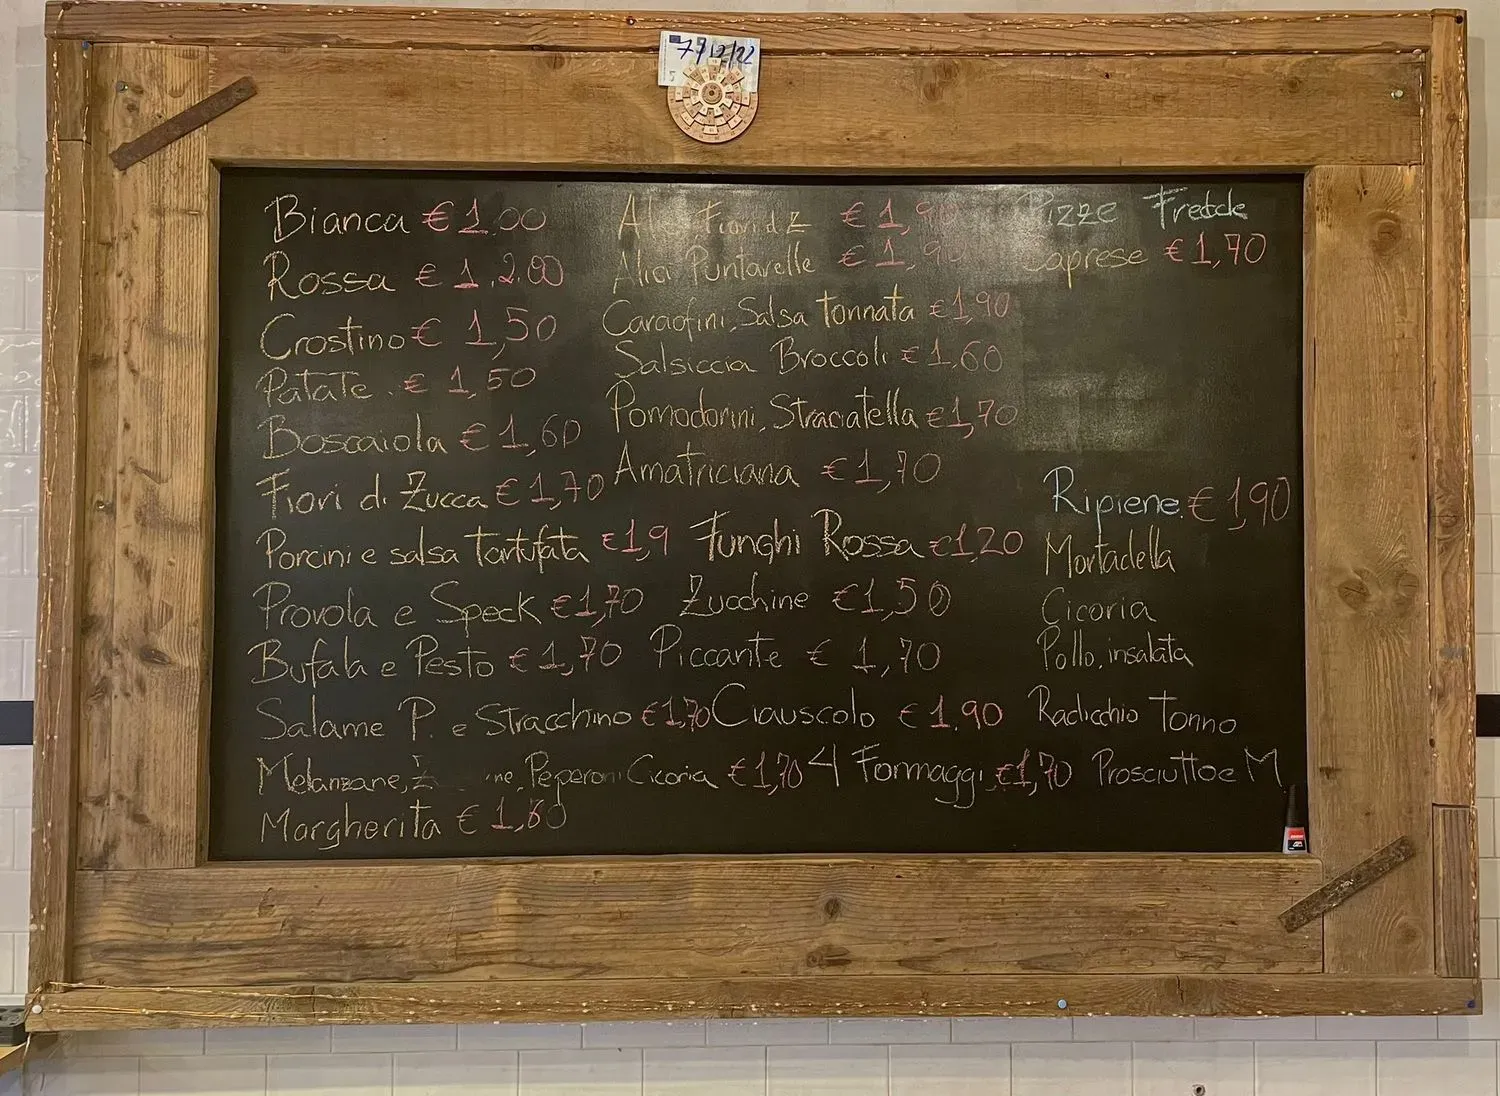 7/12/22
Bianca € 1.00
Rossa € 1.2.00
Crostino € 1,50
Patate . € 1,50
Boscaiola € 1,60
Fiori di Zucca € 1,70
Porcini e salsa tartufata € 1,9
Provola e Speck € 1,70
Bufala e Pesto € 1,70
Salame P. e Stracchino € 1,70
Melanzane, Peperoni Cicoria € 1,70
Margherita € 1,60
Fiori d Z € 1,90
Alici Puntarelle € 1,90
Salsa tonnata € 1,90
Salsiccia Broccoli € 1,60
Pomodorini, Straciatella € 1,70
Amatriciana € 1,70
Funghi Rossa € 1,20
Zucchine € 1,50
Piccante € 1,70
Ciauscolo € 1.90
4 Formaggi € 1,70
Pizze Fredde
Caprese € 1,70
Ripiene € 1,90
Mortadella
Cicoria
Pollo, insalata
Radicchio tonno
Prosciutto e M